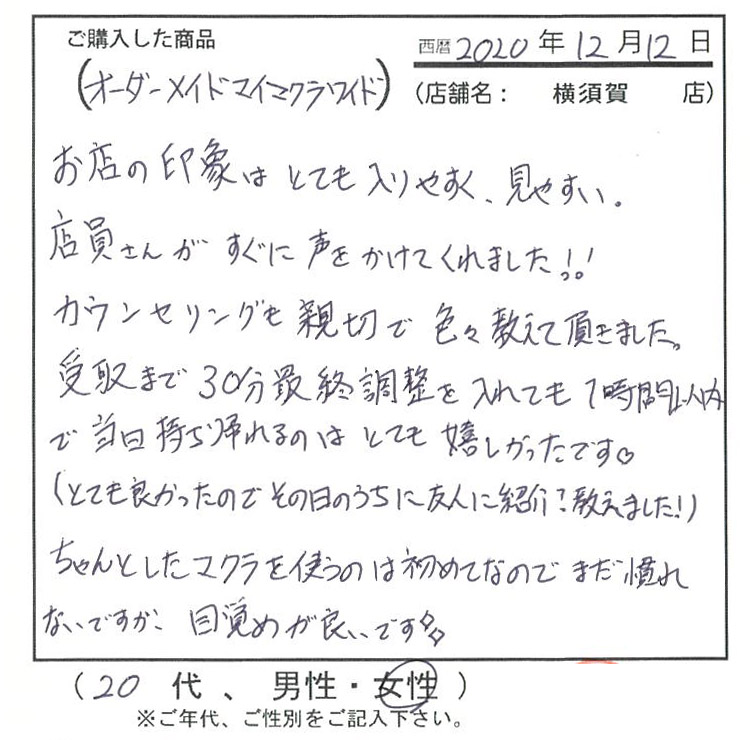 ご購入した商品
西暦 2020 年 12 月 12 日
(オーダーメイドマイマクラワイド)
(店舗名： 横須賀 店)
お店の印象はとても入りやすく、見やすい。
店員さんがすぐに声をかけてくれました!!
カウンセリングも親切で色々教えて頂きました。
受取まで30分最終調整を入れても1時間以内
で当日持ち帰れるのはとても嬉しかったです♡
(とても良かったのでその日のうちに友人に紹介?教えました!)
ちゃんとしたマクラを使うのは初めてなのでまだ慣れ
ないですが、目覚めが良いです
(20 代、男性・女性)
※ご年代、ご性別をご記入下さい。